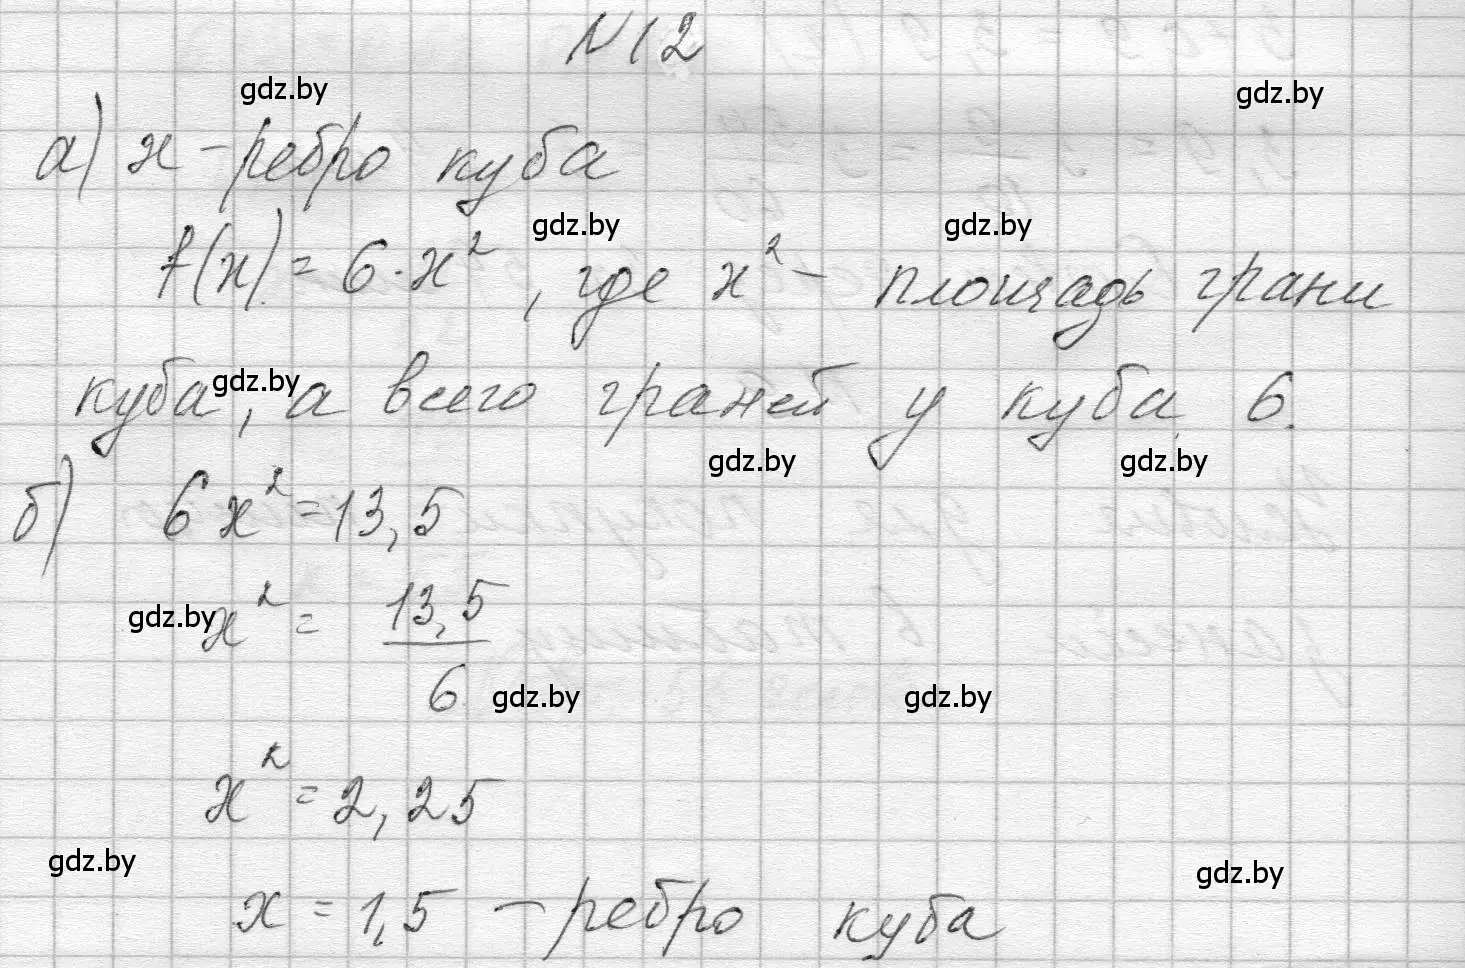 N12
gdz.by gdz.by
а) x – ребро куба
gdz.by gdz.by
f(x) = 6·x², где x² – площадь грани
куба, а всего граней у куба 6.
gdz.by
gdz.by gdz.by
б) 6x² = 13,5
x² = 13,5 / 6
gdz.by
gdz.by gdz.by
x² = 2,25
gdz.by gdz.by
x = 1,5 – ребро куба